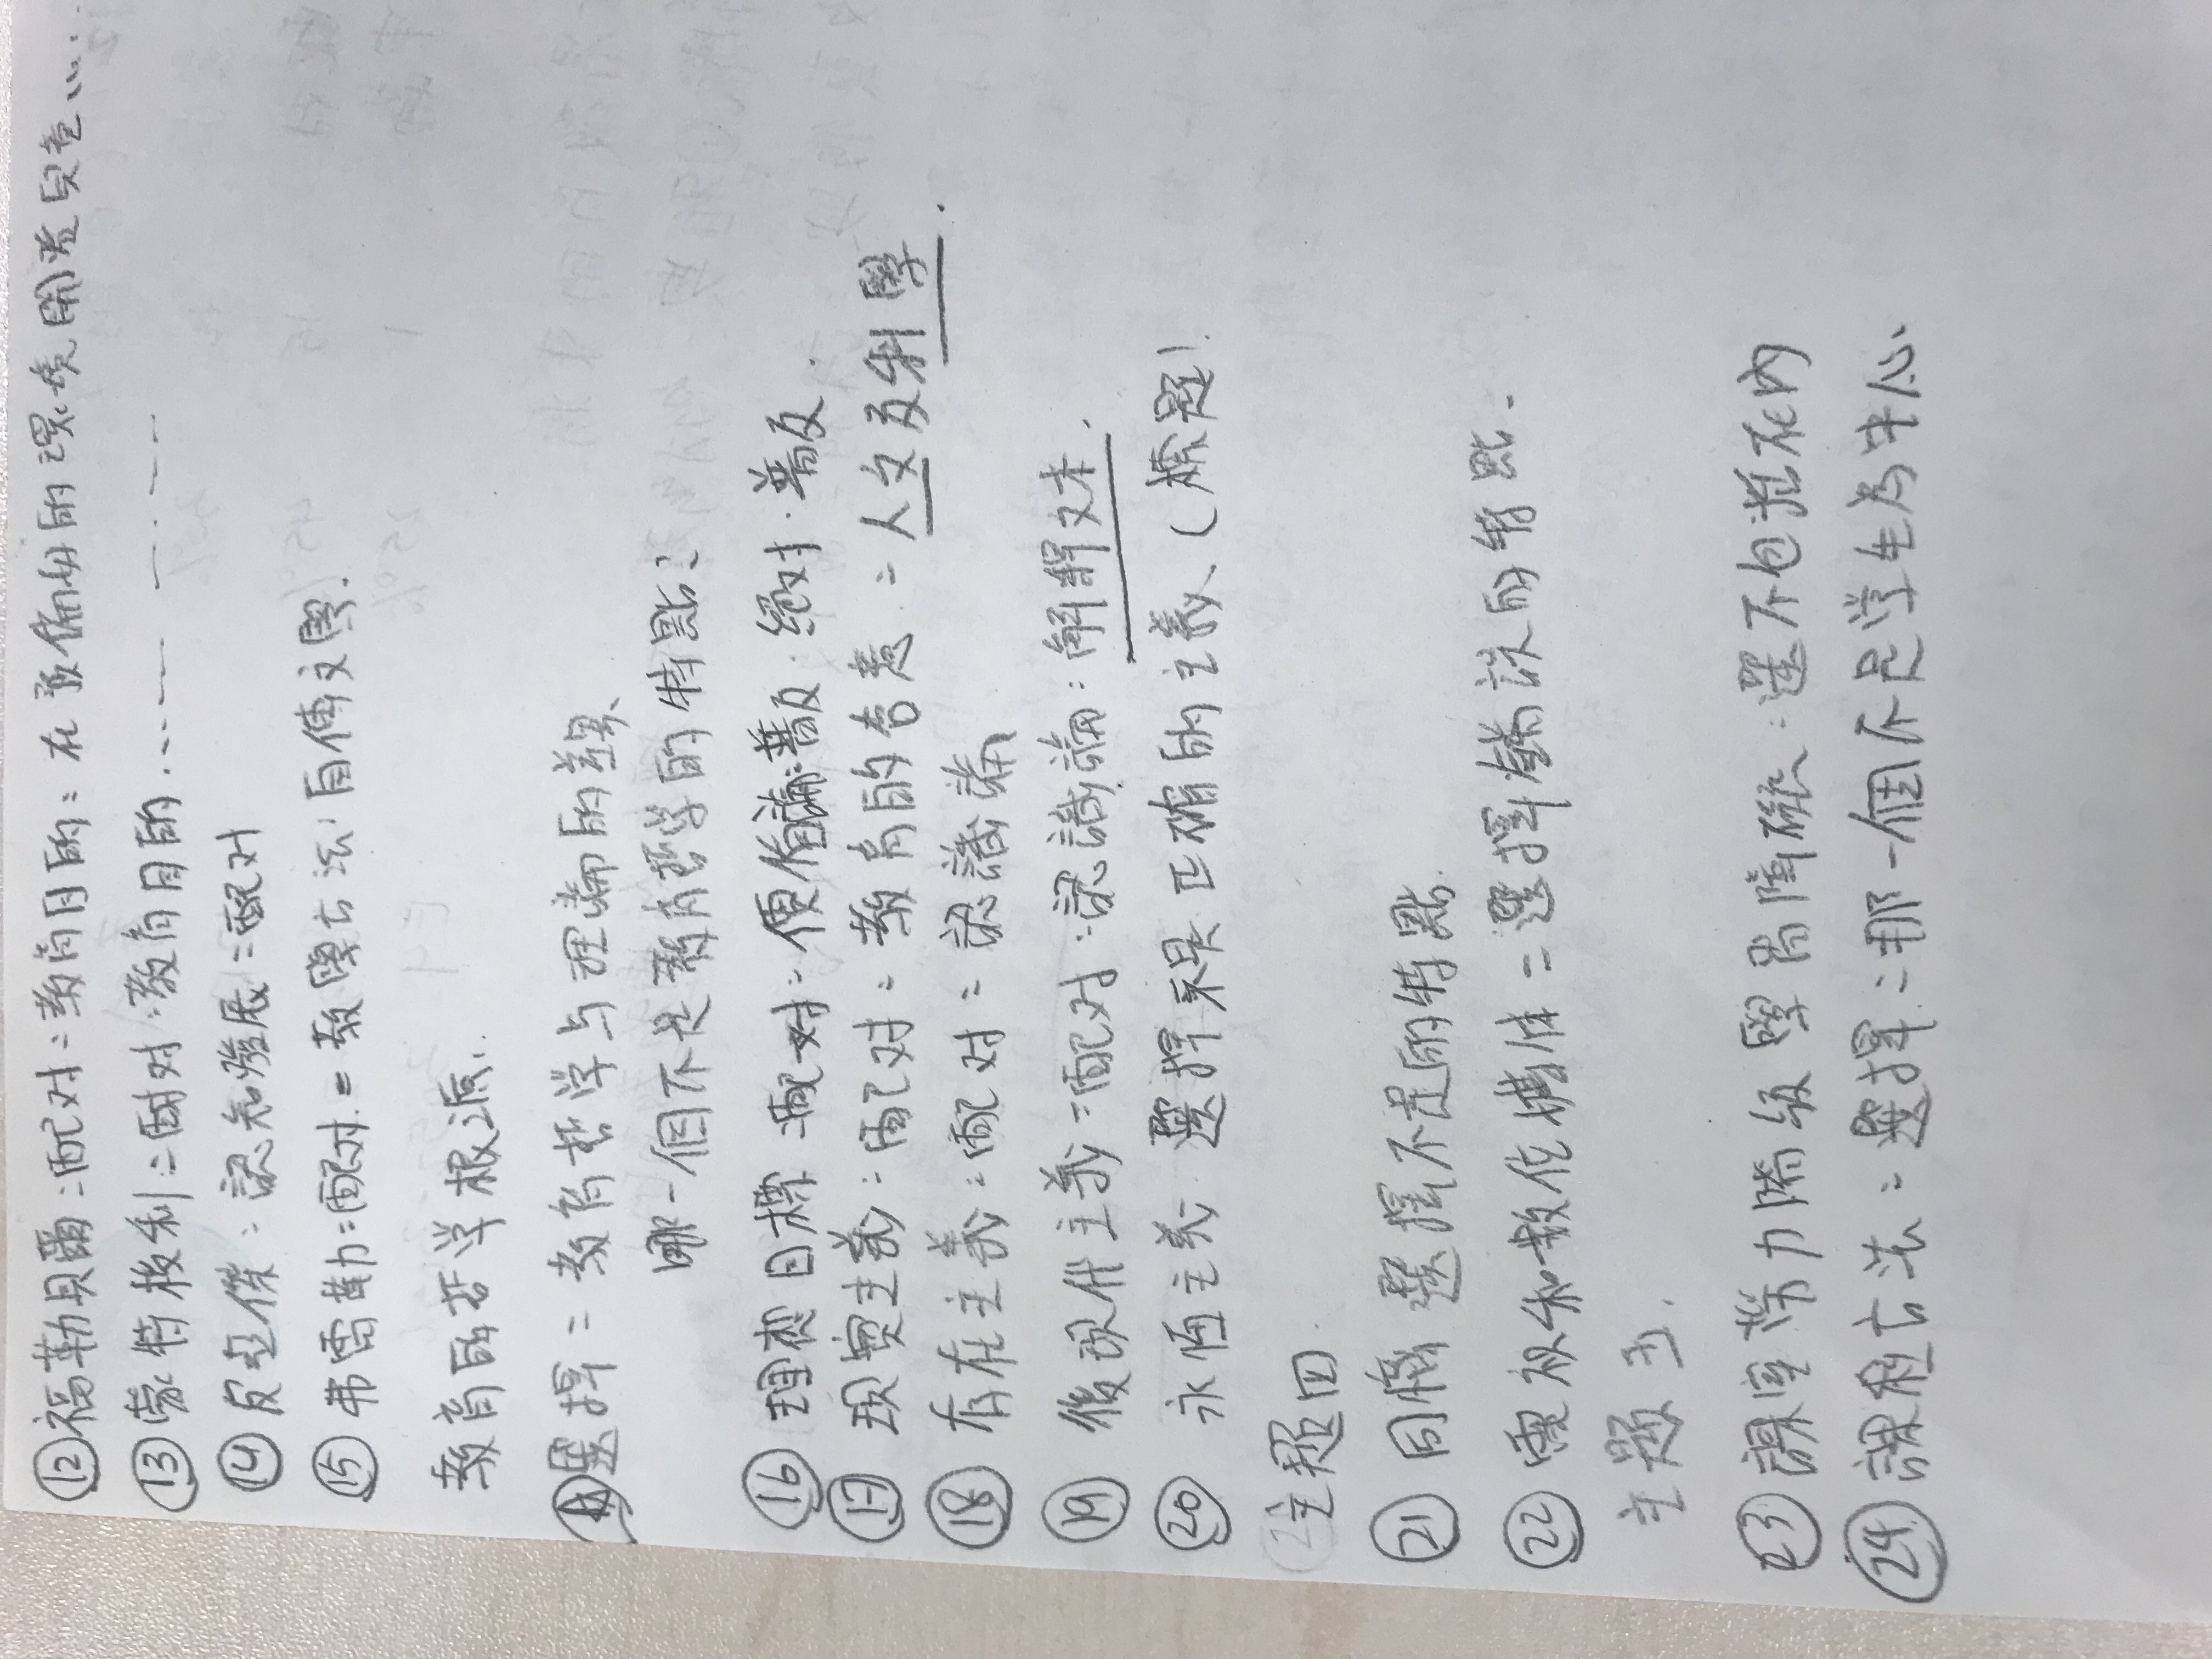 ⑫ 福勒貝爾:配对:教育目的:在預備好的環境開發兒童......
⑬ 蒙特梭利:配对:教育目的........
⑭ 皮亞傑:認知發展:配对
⑮ 弗雷勒:配对:教學方法:自傳文學.
教育的哲学根源.
選擇:教育哲学与理論的差異.
哪一個不是教育哲学的特點?
⑯ 理想目標:配对:價值論:普及.絕対.普及.
⑰ 現實主義:配对:教育的含意:人文及科學.
⑱ 存在主義:配对:認識論
⑲ 後現代主義:配对:認識論:解釋文本.
⑳ 永恆主義 選擇 正確的主義 (標題!
主題四.
㉑ 同儕 選擇不是的特點.
㉒ 電視和數位媒体:選擇錯誤的特點.
主題五.
㉓ 課室勞力階級學習障礙:選不包括在內
㉔ 課程方法:選擇:那一個不是学生為中心.